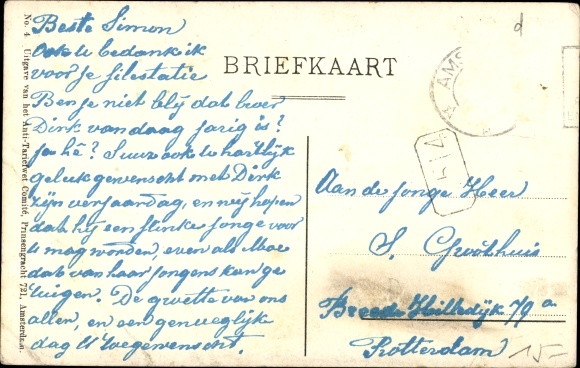 Beste Simon
Ook u bedank ik
voor je filestatie
Ben je niet blij dat broer
Dirk vandaag jarig is?
Ja hè? Suus ook u hartlijk
geluk gewenscht met Dirk
zijn verjaardag, en wij hopen
dat hij een flinke jonge voor
U mag worden, even als Moe
dat van haar jongens kan ge
tuigen. De groette van ons
allen, en een genoeglijk
dag U toegewenscht.
No. 4 Uitgave van het Anti-Tariefwet-Comité, Prinsengracht 721, Amsterdam.
BRIEFKAART
AMS
d
Aan de jonge Heer
S. Groothuis
Breede Hilledijk 79 a
Rotterdam
15-